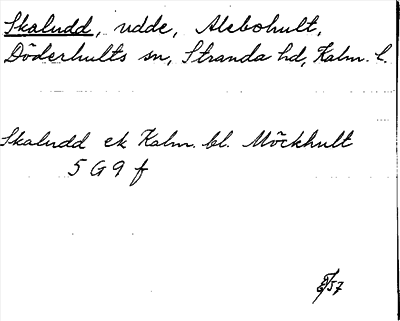 Skaludd, udde, Alebohult,
Döderhults sn, Stranda hd, Kalm. l.
Skaludd ek Kalm. bl. Möckhult
5 G 9 f
/57